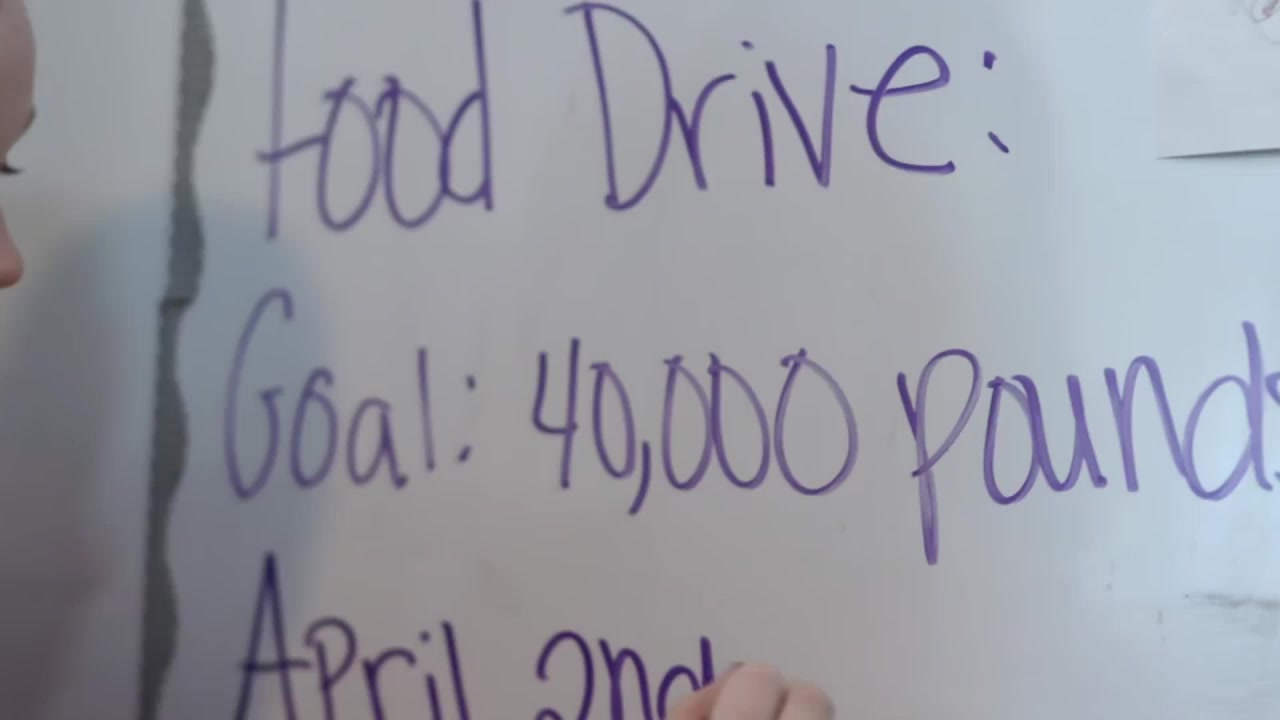 Food Drive:
Goal: 40,000 pounds
April 2nd